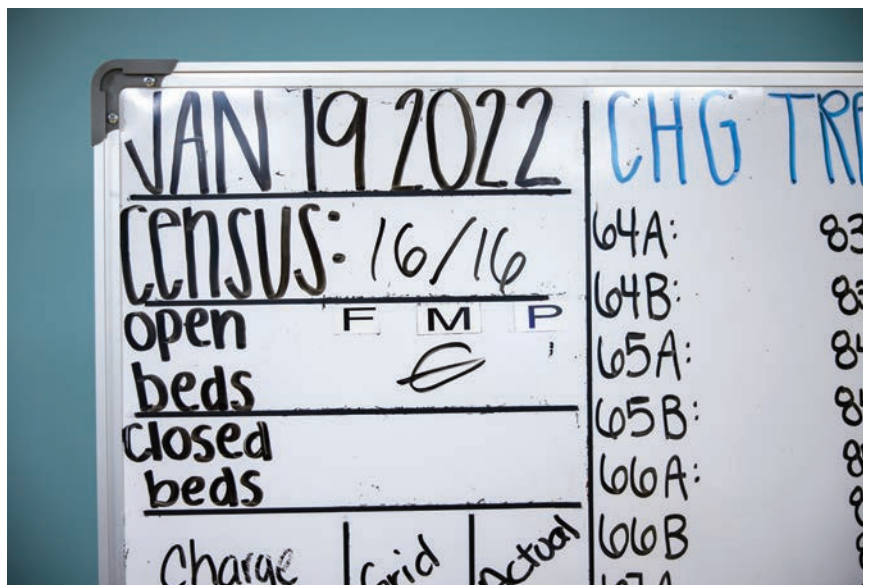 JAN 19 2022
census: 16/16
open beds
F M P
closed beds
Charge Grid Actual
CHG
64A:
64B:
65A:
65B:
66A:
66B